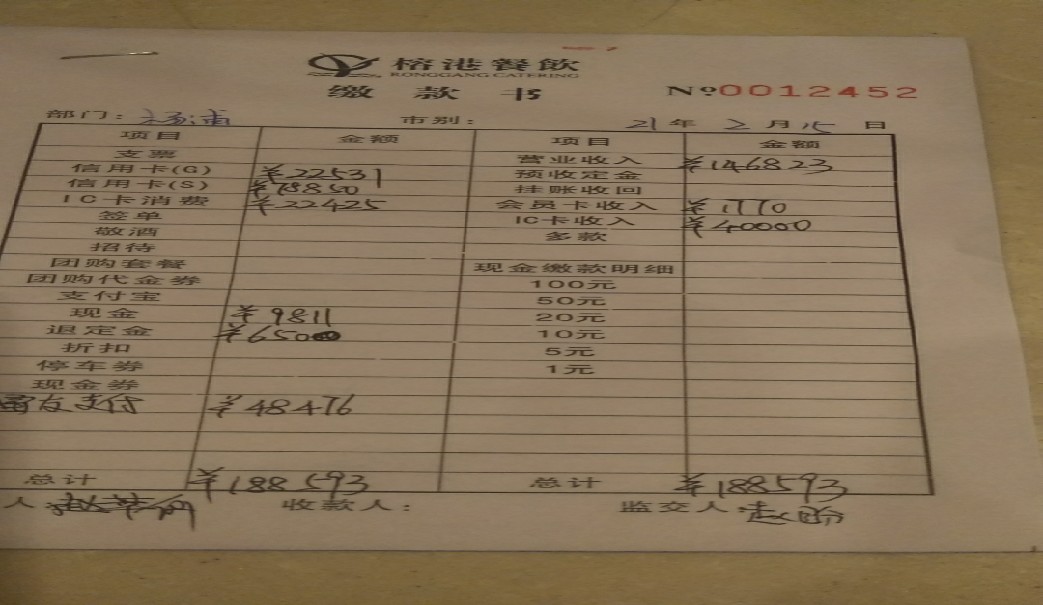 榕港餐飲
RONGGANG CATERING
缴款书 Nº0012452
部门: 杨浦 市别: 21年2月15日
项目 金额 项目 金额
支票 营业收入 ¥146823
信用卡(G) ¥22531 预收定金
信用卡(S) ¥78850 挂账收回
IC卡消费 ¥22425 会员卡收入 ¥1770
签单 IC卡收入 ¥40000
敬酒 多款
招待
团购套餐 现金缴款明细
团购代金券 100元
支付宝 50元
现金 ¥9811 20元
退定金 ¥6500 10元
折扣 5元
停车券 1元
现金券
富友支付 ¥48476
总计 ¥188593 总计 ¥188593
人: 收款人: 监交人: